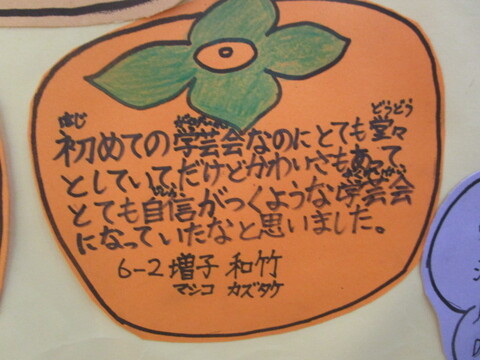 初めての学芸会なのにとても堂々
としていてだけどかわいさもあって
とても自信がつくような学芸会
になっていたなと思いました。
6-2 増子 和竹
マシコ カズタケ